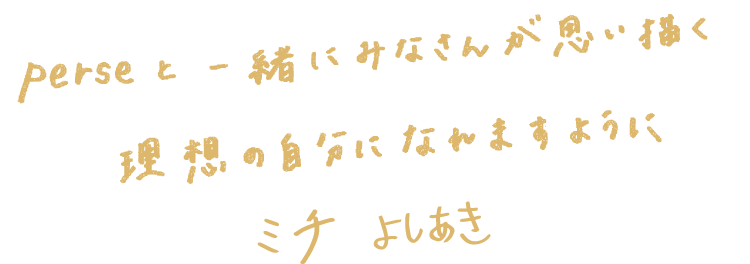 perseと一緒にみなさんが思い描く
理想の自分になれますように
ミチ よしあき